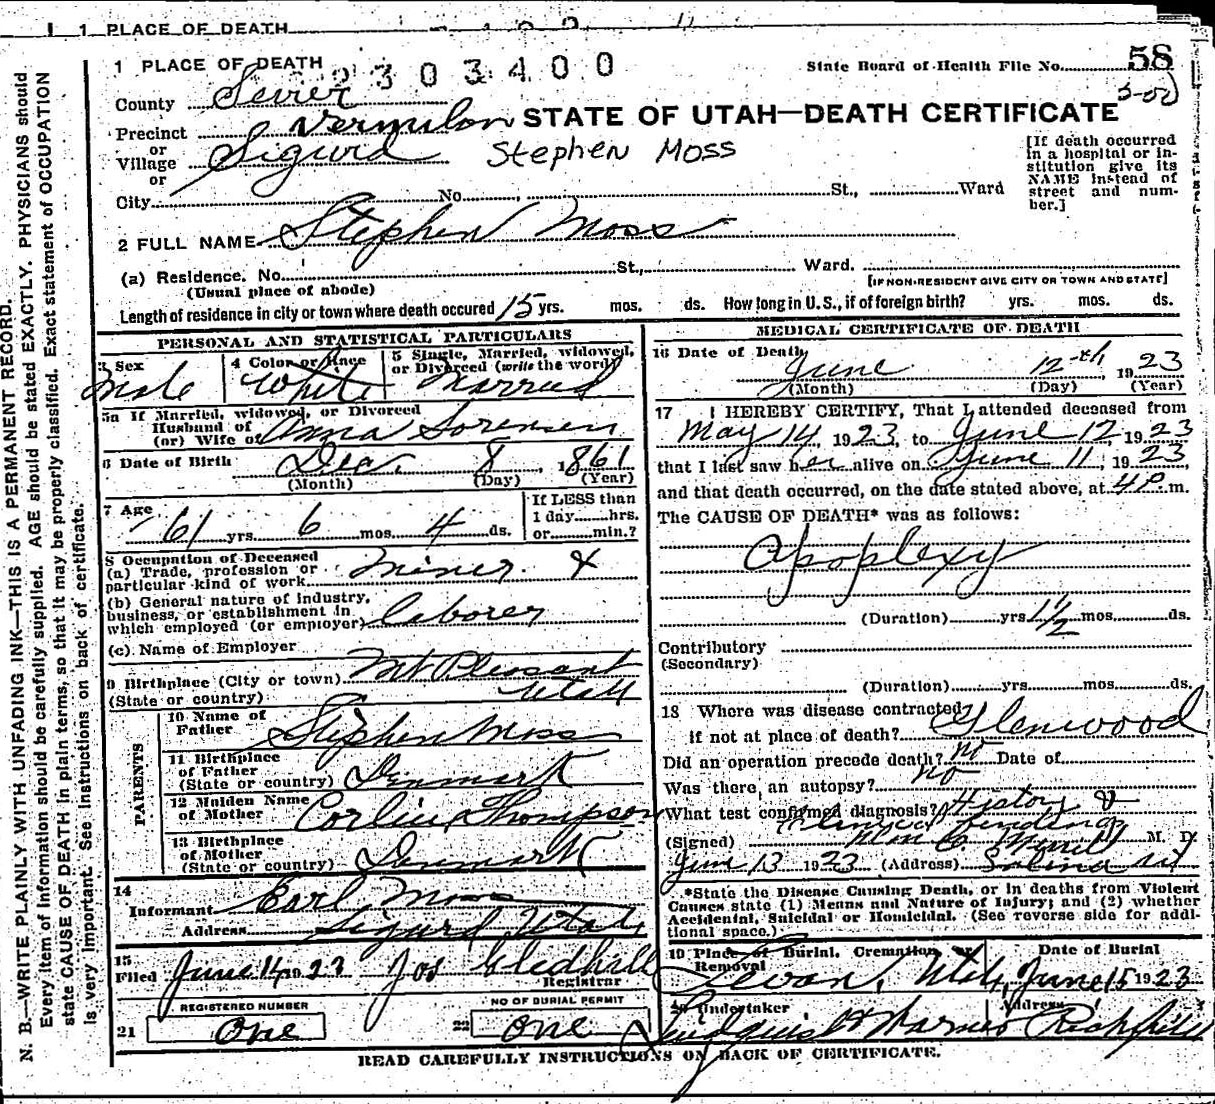 1 PLACE OF DEATH
1 PLACE OF DEATH
2303400
State Board of Health File No. 58
County Sevier
5-00
Precinct Vermilon STATE OF UTAH—DEATH CERTIFICATE
or
Village Sigurd Stephen Moss
or
City No. St., Ward
[If death occurred
in a hospital or in-
stitution give its
NAME instead of
street and num-
ber.]
2 FULL NAME Stephen Moss
(a) Residence. No. St., Ward.
(Usual place of abode) [IF NON-RESIDENT GIVE CITY OR TOWN AND STATE]
Length of residence in city or town where death occured 15 yrs. mos. ds. How long in U.S., if of foreign birth? yrs. mos. ds.
PERSONAL AND STATISTICAL PARTICULARS
3 Sex 4 Color or Race 5 Single, Married, widowed,
or Divorced (write the word)
Male White Married
5a If Married, widowed, or Divorced
Husband of
(or) Wife of Anna Sorensen
6 Date of Birth Dec. 8, 1861
(Month) (Day) (Year)
7 Age If LESS than
61 yrs 6 mos 4 ds. 1 day hrs.
or min.?
8 Occupation of Deceased
(a) Trade, profession or
particular kind of work Miner &
(b) General nature of industry,
business, or establishment in
which employed (or employer) laborer
(c) Name of Employer
9 Birthplace (City or town) Mt Pleasant
(State or country) Utah
PARENTS
10 Name of
Father Stephen Moss
11 Birthplace
of Father
(State or country) Denmark
12 Maiden Name
of Mother Thompson
13 Birthplace
of Mother
(State or country) Denmark
14
Informant Earl Moss
Address Sigurd Utah
15
Filed June 14 1923 Jos Gledhill
Registrar
REGISTERED NUMBER NO OF BURIAL PERMIT
21 One 22 One
MEDICAL CERTIFICATE OF DEATH
16 Date of Death
June 12th, 1923
(Month) (Day) (Year)
17 I HEREBY CERTIFY, That I attended deceased from
May 14 1923, to June 12, 1923
that I last saw her alive on June 11, 1923
and that death occurred, on the date stated above, at 4 P. m.
The CAUSE OF DEATH* was as follows:
Apoplexy
(Duration) yrs 1½ mos. ds.
Contributory
(Secondary)
(Duration) yrs mos ds.
18 Where was disease contracted
if not at place of death? Glenwood
Did an operation precede death? no Date of
Was there an autopsy? no
What test confirmed diagnosis? History &
(Signed) M. D.
June 13 1923 (Address) Salina Ut
*State the Disease Causing Death, or in deaths from Violent
Causes state (1) Means and Nature of Injury; and (2) whether
Accidental, Suicidal or Homicidal. (See reverse side for addi-
tional space.)
19 Place of Burial, Cremation or Date of Burial
Removal
Levan, Utah, June 15 1923
20 Undertaker Address
Richfield
READ CAREFULLY INSTRUCTIONS ON BACK OF CERTIFICATE.
N. B.—WRITE PLAINLY WITH UNFADING INK—THIS IS A PERMANENT RECORD.
Every item of information should be carefully supplied. AGE should be stated EXACTLY. PHYSICIANS should
state CAUSE OF DEATH in plain terms, so that it may be properly classified. Exact statement of OCCUPATION
is very important. See instructions on back of certificate.